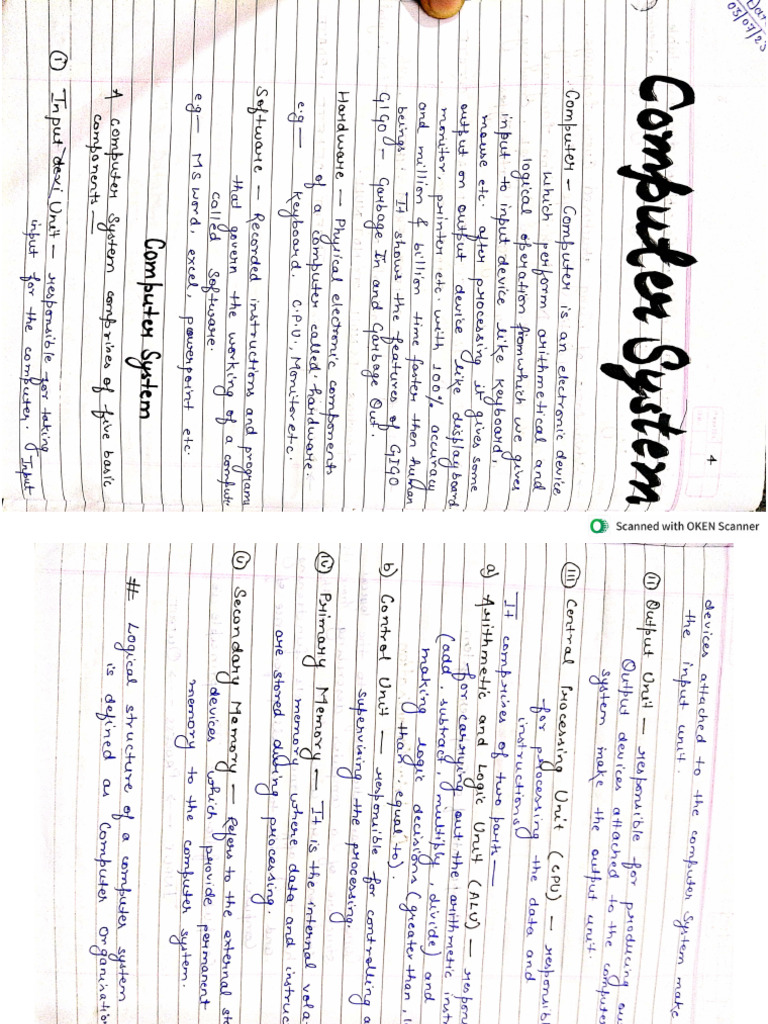 03/07/23
4
Computer System
Computer - Computer is an electronic device
which perform arithmetical and
logical operation from which we gives
input to input device like keyboard,
mouse etc. after processing it gives some
output on output device like display board
monitor, printer etc. with 100% accuracy
and million & billion time faster then human
beings. It shows the features of GIGO
GIGO - Garbage In and Garbage Out.
Hardware - Physical electronic components
of a computer called hardware.
e.g - keyboard, C.P.U., Monitor etc.
Software - Recorded instructions and programs
that govern the working of a compute
called software.
e.g - MS word, excel, powerpoint etc.
Computer System
A computer System comprises of five basic
components -
(i) Input Unit - responsible for taking
input for the computer. Input
Scanned with OKEN Scanner
devices attached to the computer system make
the input unit.
(ii) Output Unit - responsible for producing ou
Output devices attached to the compute
system make the output unit.
(iii) Central Processing Unit (CPU) - responsibl
for processing the data and
instructions
It comprises of two parts -
a) Arithmetic and Logic Unit (ALU) - respon
for carrying out the arithmetic instr
(add, subtract, multiply, divide) and
making logic decisions (greater than, l
than, equal to).
b) Control Unit - responsible for controlling a
supervising the processing.
(iv) Primary Memory - It is the internal vola
memory where data and instruc
are stored during processing.
(v) Secondary Memory - Refers to the external st
devices which provide permanent
memory to the computer system.
# Logical structure of a computer system
is defined as Computer Organisation